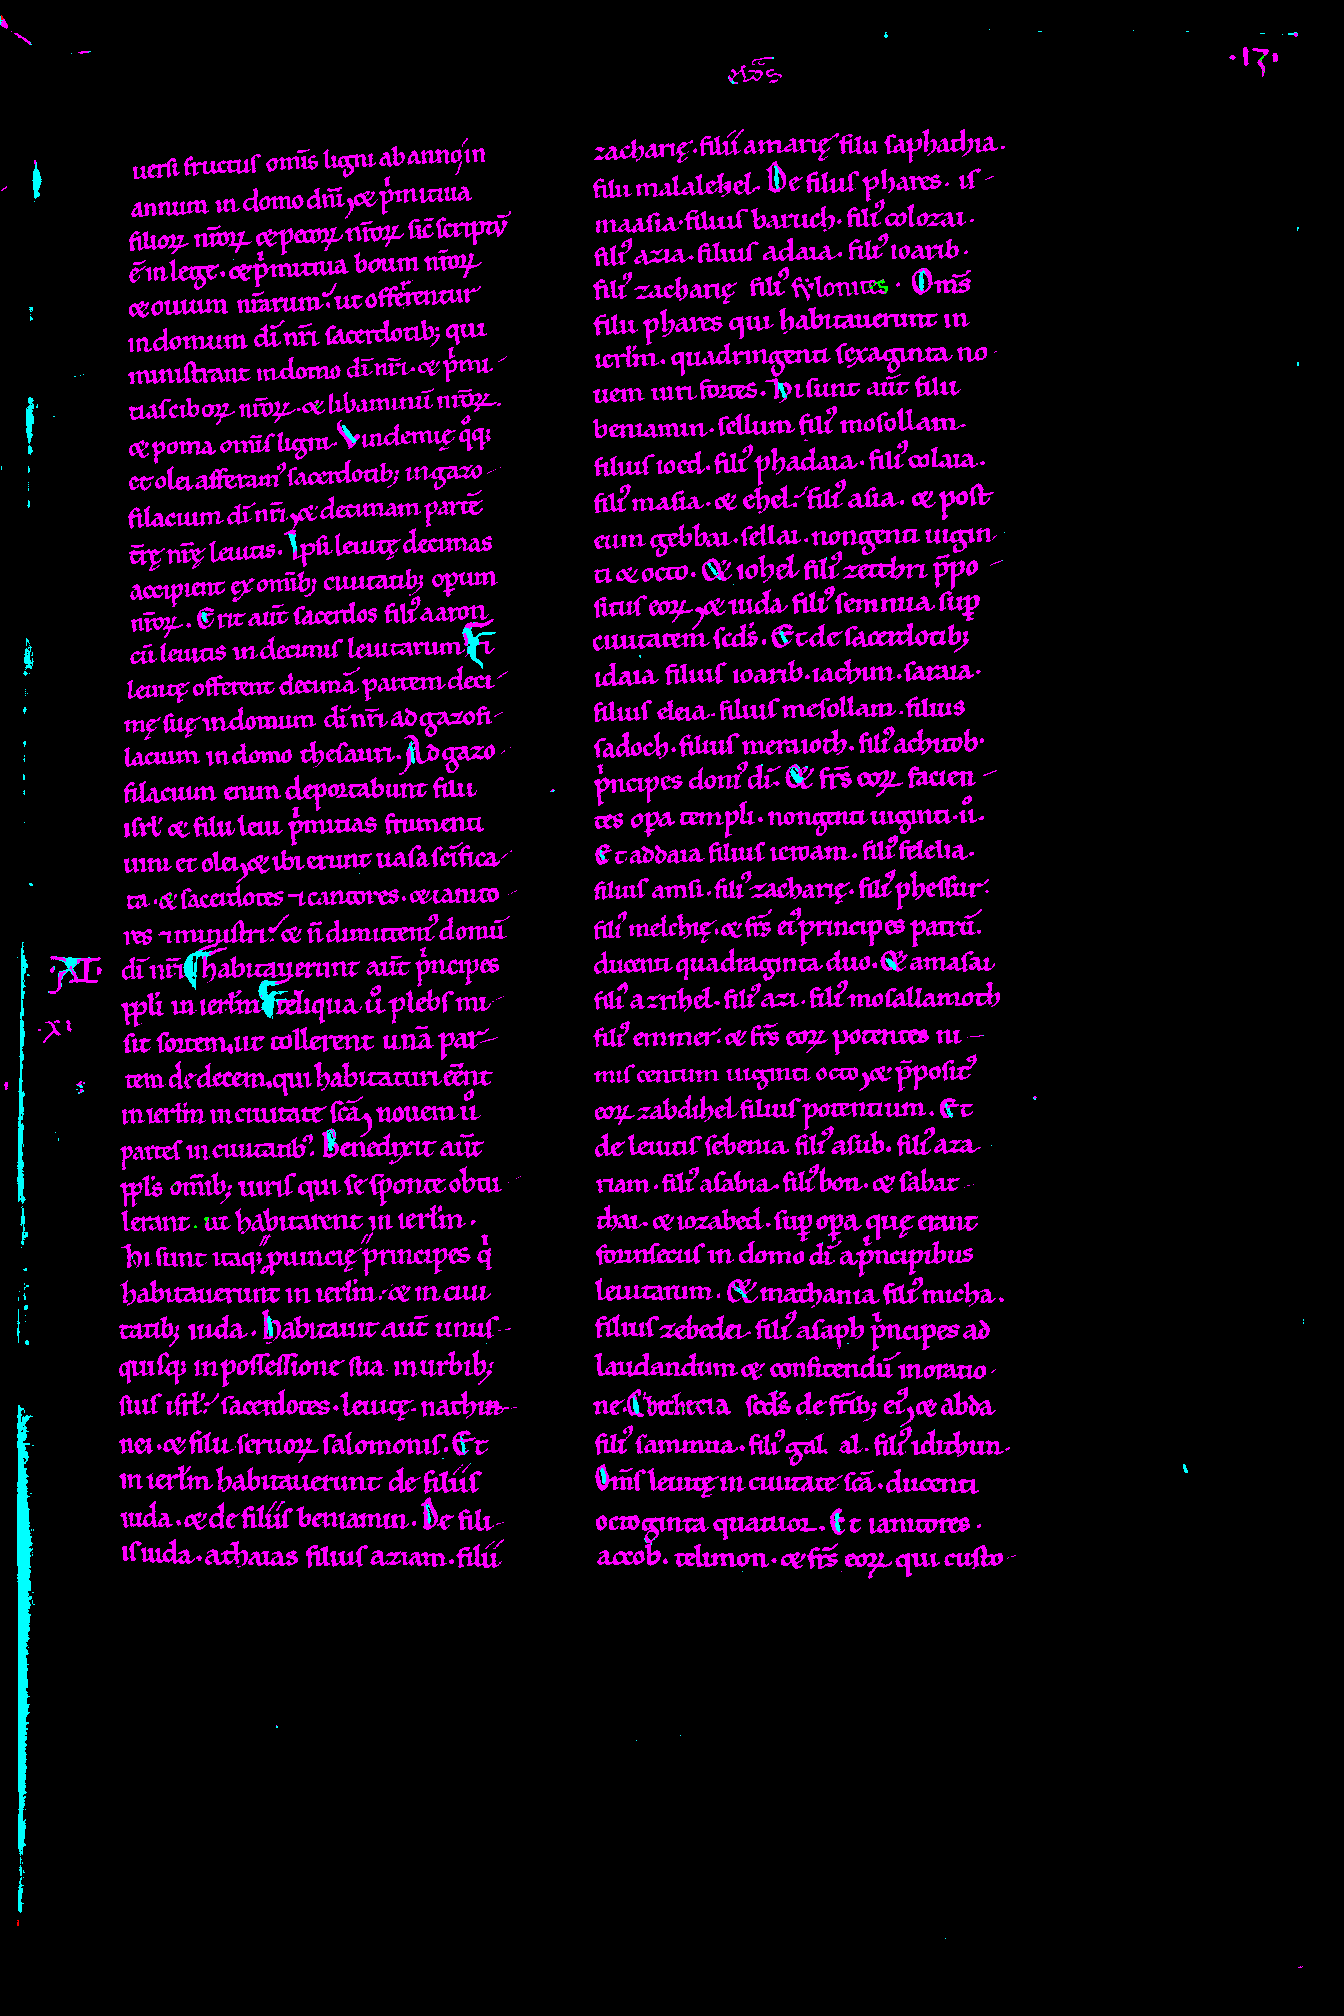 ·17·
uersi fructus om̄s ligni ab anno in
annum in domo dn̄i, & p̍mitiua
filioꝝ nr̄oꝝ & pecoꝝ nr̄oꝝ sic̄ scriptū
ē in lege. & p̍mitiua boum nr̄oꝝ
& ouium nr̄arum. ut offerrentur
in domum dī nr̄i sacerdotib; qui
ministrant in domo dī nr̄i. & p̍mi-
tias ciboꝝ nr̄oꝝ. & libaminū nr̄oꝝ.
& poma om̄is ligni. Vindemię qͦq;
et olei afferam᾽ sacerdotib; in gazo-
filacium dī nr̄i, & decimam partē
tr̄ę nr̄ę leuitis. Ipsi leuitę decimas
accipient ex om̄ib; ciuitatib; operum
nr̄oꝝ. Erit aūt sacerdos fili᾽ aaron
cū leuitis in decimis leuitarum Et
leuitę offerent decimā partem deci-
mę suę in domum dī nr̄i ad gazofi-
lacium in domo thesauri. Ad gazo-
filacium enim deportabunt filii
isrl̄ & filii leui p̍mitias frumenti
uini et olei, & ibi erunt uasa scīfica-
ta. & sacerdotes ⁊ cantores. & ianito-
res ⁊ ministri. & n̄ dimittem᾽ domū
dī nr̄i Habitauerunt aūt p̍ncipes
ppl̄i in ierl̄m Reliqua ůͦ plebs mi-
sit sortem, ut tollerent unā par-
tem de decem, qui habitaturi eēnt
in ierl̄m in ciuitate scā, nouem uͦ
partes in ciuitatib᾽. Benedixit aūt
ppl̄s om̄ib; uiris qui se sponte obtu-
lerant. ut habitarent in ierl̄m.
hi sunt itaq; ꝓuincię principes q̍
habitauerunt in ierl̄m. & in ciui
tatib; iuda. Habitauit aūt unus-
quisq; in possessione sua in urbib;
suis isrl̄. sacerdotes. leuitę. nathin-
nei. & filii seruoꝝ salomonis. Et
in ierl̄m habitauerunt de filiis
iuda. & de filiis beniamin. De fili-
is iuda. athaias filius aziam. filii
XI.
·XI
zacharię. filii amarię filii saphathia.
filii malalehel. De filius phares. is-
maasia. filius baruch. fili᾽ colozai.
fili᾽ azia. filius adaia. fili᾽ ioarib.
fili᾽ zacharię fili᾽ sẏlonites. Om̄s
filii phares qui habitauerunt in
ierl̄m. quadringenti sexaginta no-
uem uiri fortes. Hi sunt aūt filii
beniamin. sellum fili᾽ mosollam.
filius ioed. fili᾽ phadaia. fili᾽ colaia.
fili᾽ masia. & ehel. fili᾽ asia. & post
eum gebbai. sellai. nongenti uigin
ti & octo. & iohel fili᾽ zetthri p̄po-
situs eoꝝ, & iuda fili᾽ semnua sup̱
ciuitatem scd̄s. Et de sacerdotib;
idaia filius ioarib. iachim. saraia.
filius eleia. filius mesollam. filius
sadoch. filius meraioth. fili᾽ achitob.
p̍ncipes dom᾽ dī. & fr̄s eoꝝ facien-
tes op̱a templi. nongenti uiginti. uͦ.
Et addaia filius ieroam. fili᾽ felelia.
filius amsi. fili᾽ zacharię. fili᾽ phessur.
fili᾽ melchię. & fr̄s ei᾽ principes patrū.
ducenti quadraginta duo. & amasai
fili᾽ azrihel. fili᾽ azi. fili᾽ mosallamoth
fili᾽ emmer. & fr̄s eoꝝ potentes ni-
mis centum uiginti octo, & p̄posit᾽
eoꝝ zabdihel filius potentium. Et
de leuitis sebenia fili᾽ asub. fili᾽ aza-
riam. fili᾽ asabia. fili᾽ bon. & sabat-
thai. & iozabed. sup̱ op̱a quę erant
forinsecus in domo dī a p̍ncipibus
leuitarum. & mathania fili᾽ micha.
filius zebedei. fili᾽ asaph p̍ncipes ad
laudandum & confitendū in oratio-
ne. & becthecia scd̄s de fr̄ib; ei᾽, & abda
fili᾽ samnua. fili᾽ gal al. fili᾽ idithun.
Om̄s leuitę in ciuitate scā. ducenti
octoginta quatuor. Et ianitores.
accob. telmon. & fr̄s eoꝝ qui custo-